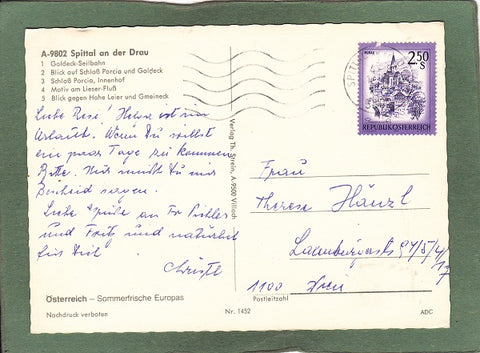 A-9802 Spittal an der Drau
1 Goldeck-Seilbahn
2 Blick auf Schloß Porcia und Goldeck
3 Schloß Porcia, Innenhof
4 Motiv am Lieser-Fluß
5 Blick gegen Hohe Leier und Gmeineck
Liebe Resi! Helene ist im
Urlaub. Wenn Du willst
ein paar Tage zu kommen
Bitte. Nur mußt Du uns
Bescheid sagen.
Liebe Grüße an Fr.
und Fritz und natürlich
für Dich
Christl
Österreich – Sommerfrische Europas
Nachdruck verboten
Verlag Th. Strein, A-9500 Villach
Nr. 1452
2,50
S
REPUBLIK ÖSTERREICH
SPITT
Frau
Therese Hänzl
Laxenburgerstr 94/5/4/
17
1100 Wien
Postleitzahl
ADC